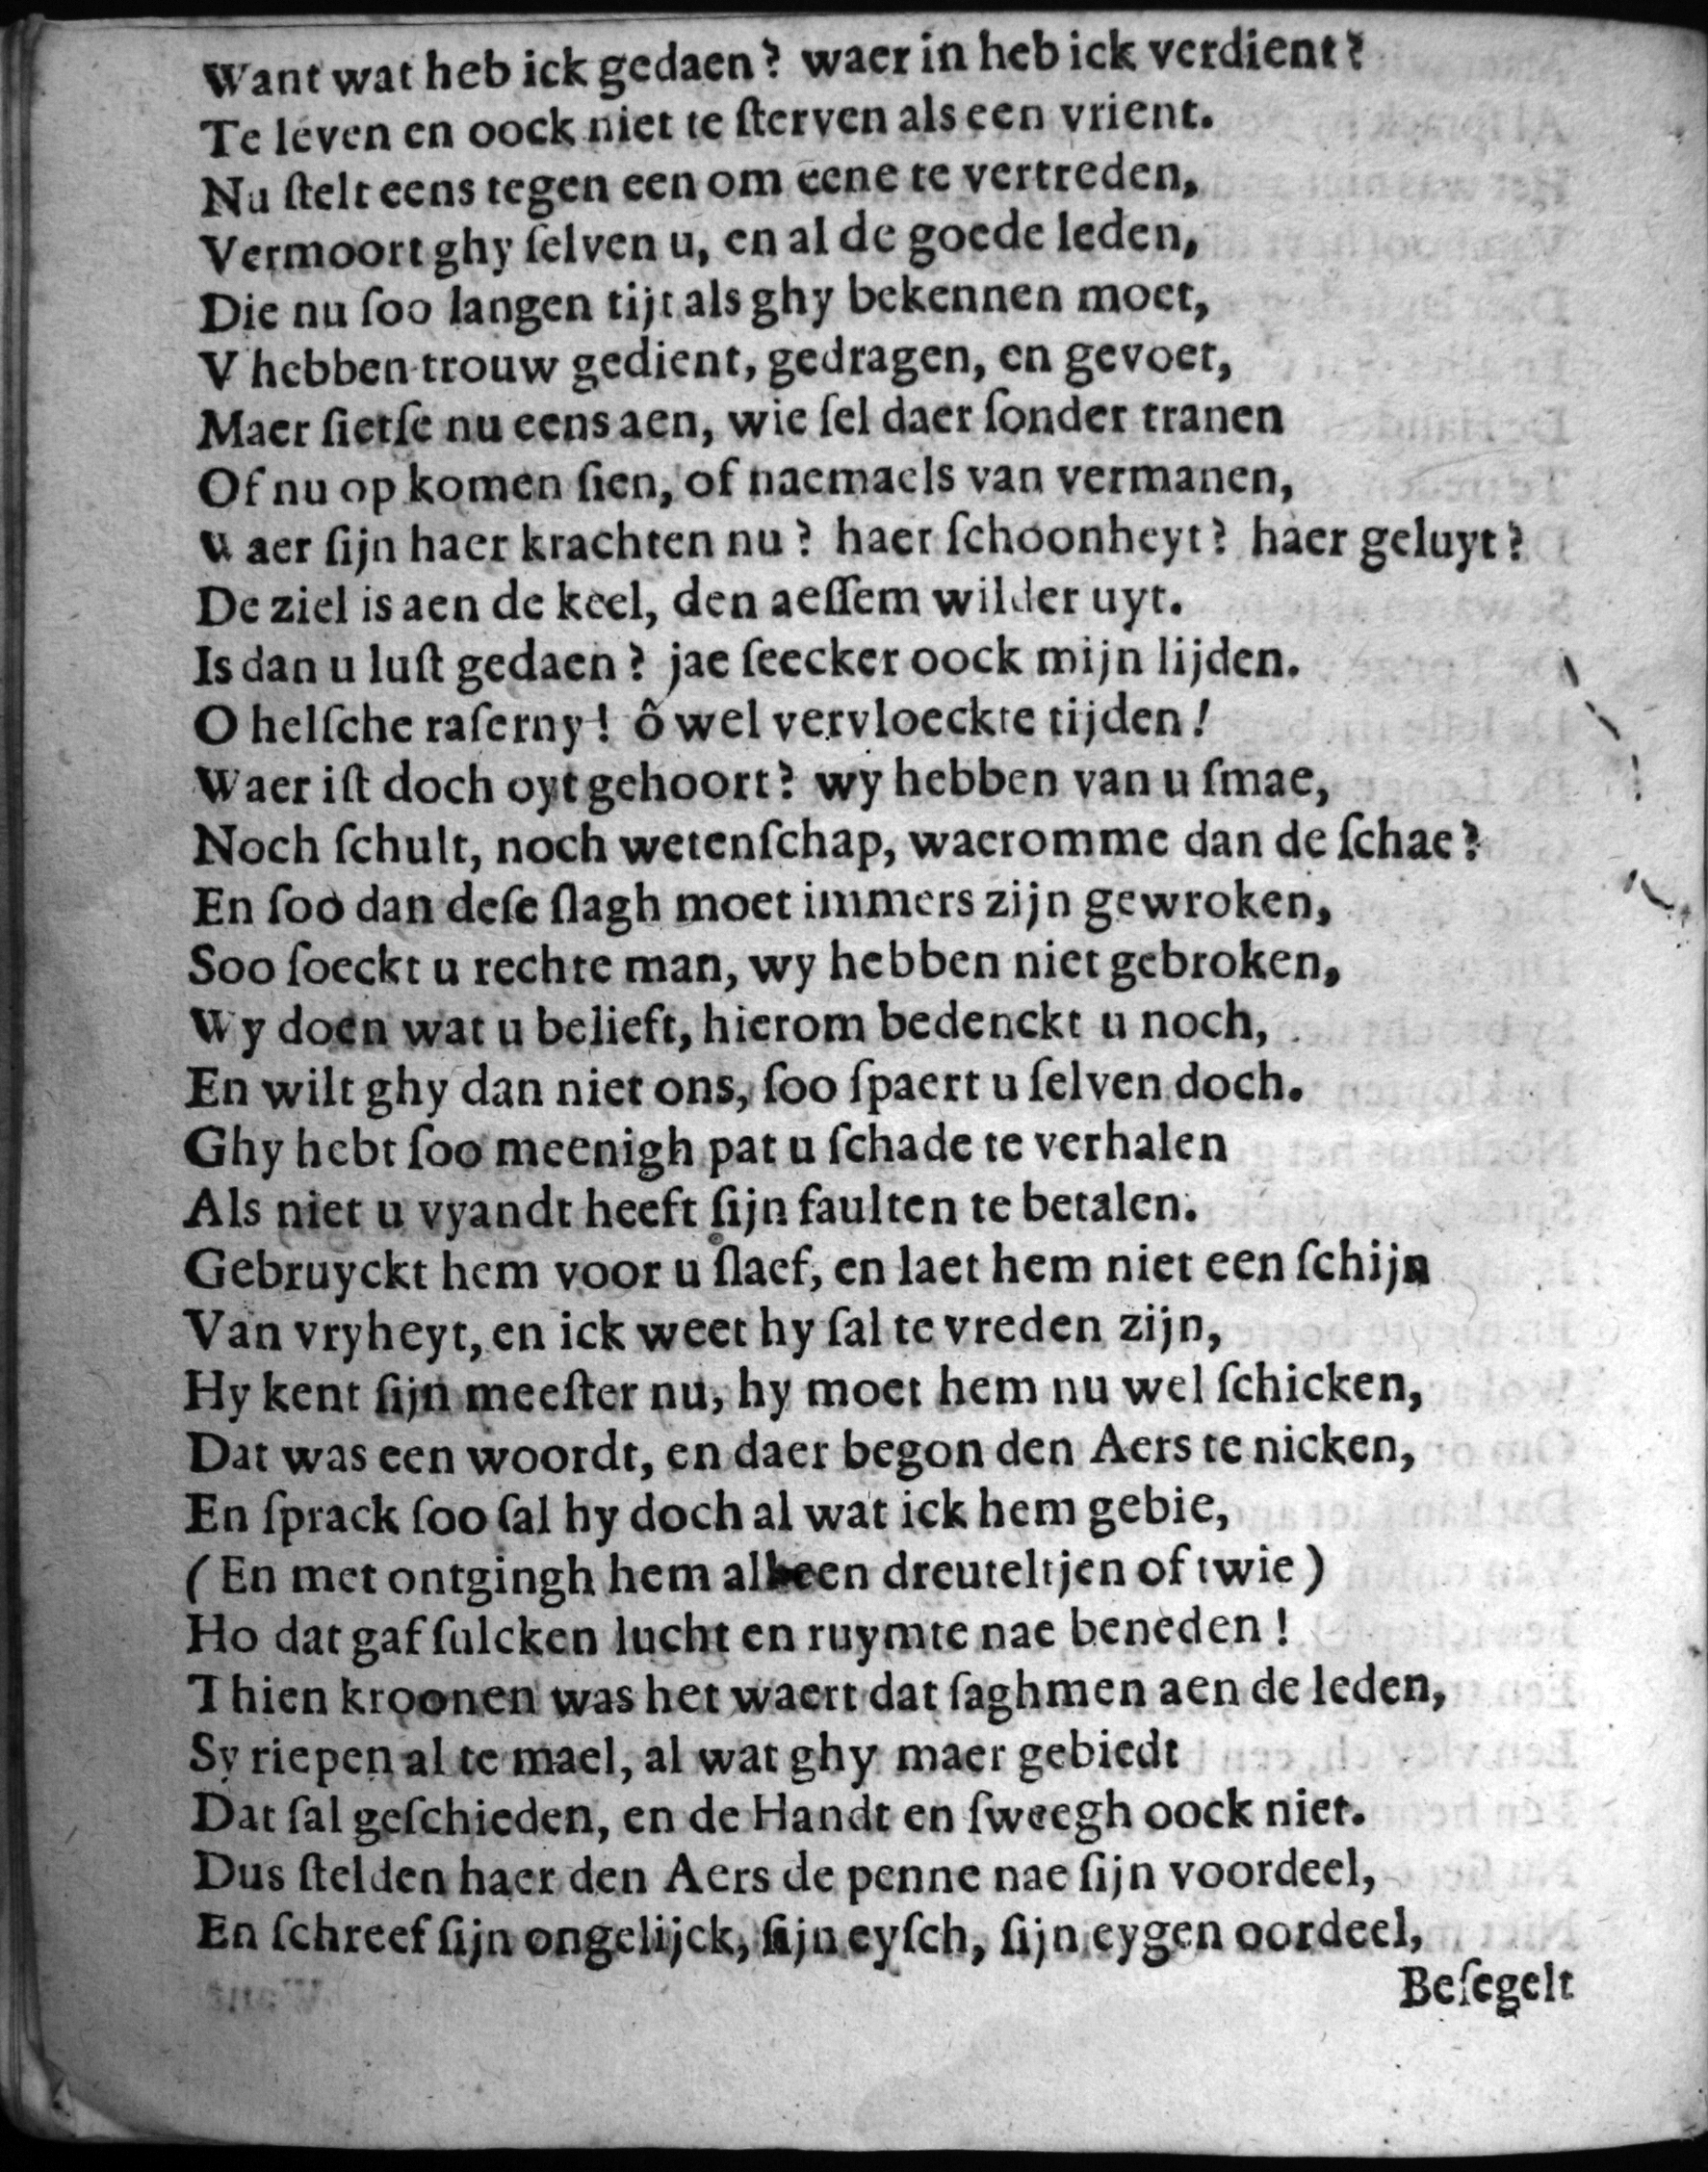 Want wat heb ick gedaen? waer in heb ick verdient?
Te leven en oock niet te ſterven als een vrient.
Nu ſtelt eens tegen een om eene te vertreden,
Vermoort ghy ſelven u, en al de goede leden,
Die nu ſoo langen tijt als ghy bekennen moet,
V hebben trouw gedient, gedragen, en gevoet,
Maer ſietſe nu eens aen, wie ſel daer ſonder tranen
Of nu op komen ſien, of naemaels van vermanen,
Waer ſijn haer krachten nu? haer ſchoonheyt? haer geluyt?
De ziel is aen de keel, den aeſſem wilder uyt.
Is dan u luſt gedaen? jae ſeecker oock mijn lijden.
O helſche raſerny! ô wel vervloeckte tijden!
Waer iſt doch oyt gehoort? wy hebben van u ſmae,
Noch ſchult, noch wetenſchap, waeromme dan de ſchae?
En ſoo dan deſe ſlagh moet immers zijn gewroken,
Soo ſoeckt u rechte man, wy hebben niet gebroken,
Wy doen wat u belieft, hierom bedenckt u noch,
En wilt ghy dan niet ons, ſoo ſpaert u ſelven doch.
Ghy hebt ſoo meenigh pat u ſchade te verhalen
Als niet u vyandt heeft ſijn faulten te betalen.
Gebruyckt hem voor u ſlaef, en laet hem niet een ſchijn
Van vryheyt, en ick weet hy ſal te vreden zijn,
Hy kent ſijn meeſter nu, hy moet hem nu wel ſchicken,
Dat was een woordt, en daer begon den Aers te nicken,
En ſprack ſoo ſal hy doch al wat ick hem gebie,
(En met ontgingh hem al een dreuteltjen of twie)
Ho dat gaf ſulcken lucht en ruymte nae beneden!
Thien kroonen was het waert dat ſaghmen aen de leden,
Sy riepen al te mael, al wat ghy maer gebiedt
Dat ſal geſchieden, en de Handt en ſweegh oock niet.
Dus ſtelden haer den Aers de penne nae ſijn voordeel,
En ſchreef ſijn ongelijck, ſijn eyſch, ſijn eygen oordeel,
Beſegelt